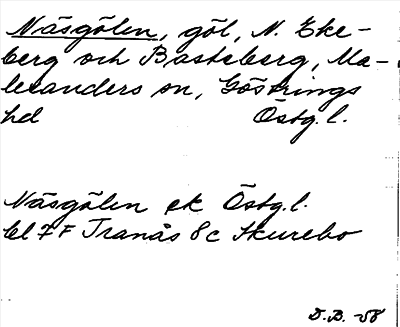 Näsgölen, göl, N. Eke-
berg och Basteberg, Ma-
lexanders sn, Göstrings
hd Östg. l.
Näsgölen ek Östg. l.
bl 7 F Tranås 8 c Skurebo
D.B. -58